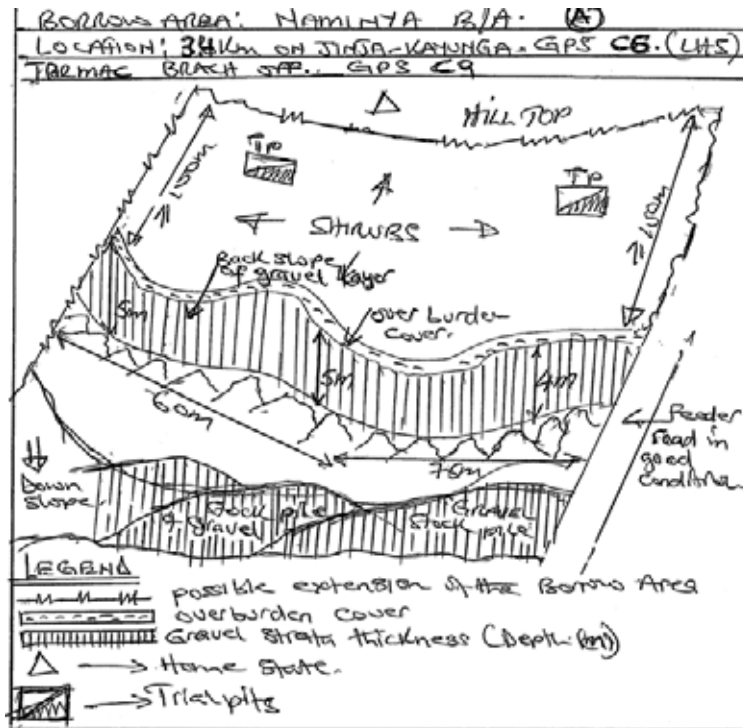 BORROW AREA: NAMINYA B/A. (A)
LOCATION: 34Km ON JINJA-KAYUNGA. GPS C6. (LHS)
TARMAC BRACH OFF.. GPS C9
HILL TOP
Tp
Tp
≈ 150m
≈ 150m
SHRUBS
Back slope/
of gravel layer
over burden
cover.
5m
5m
4m
60m
70m
Feeder
road in
good
condition.
Down
slope.
Stock pile
of gravel
Gravel
stock pile
LEGEND
possible extension of the Borrow Area
overburden cover
Gravel strata thickness (Depth:(m))
Home state.
Trial pits